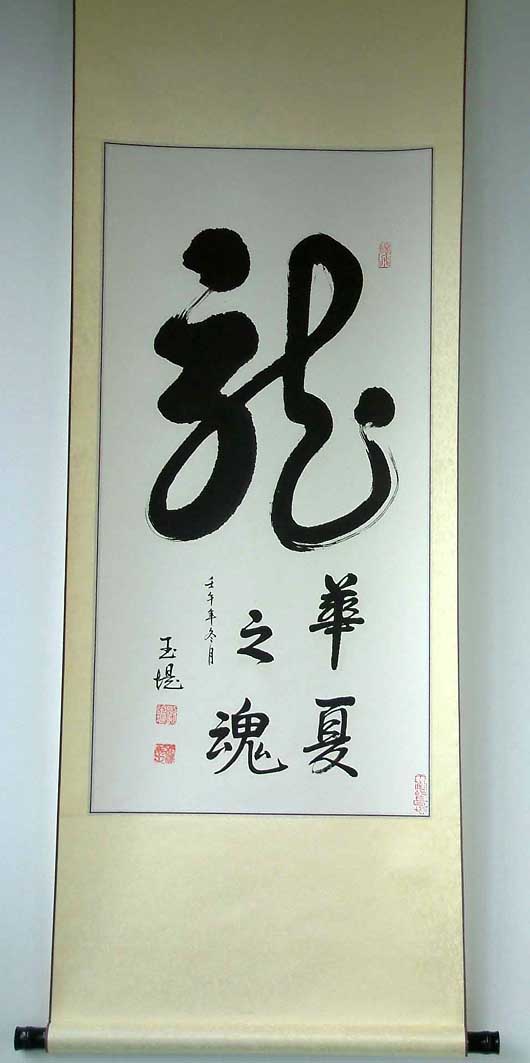 龍
華夏
之魂
壬午年冬月
玉堤